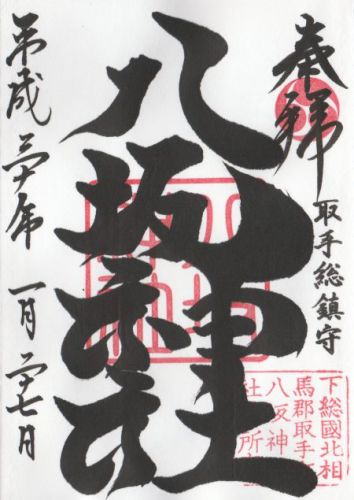 奉拝
取手総鎮守
下総國北相
馬郡取手
八坂神
社 所
八坂神社
平成三十年 一月二十七日